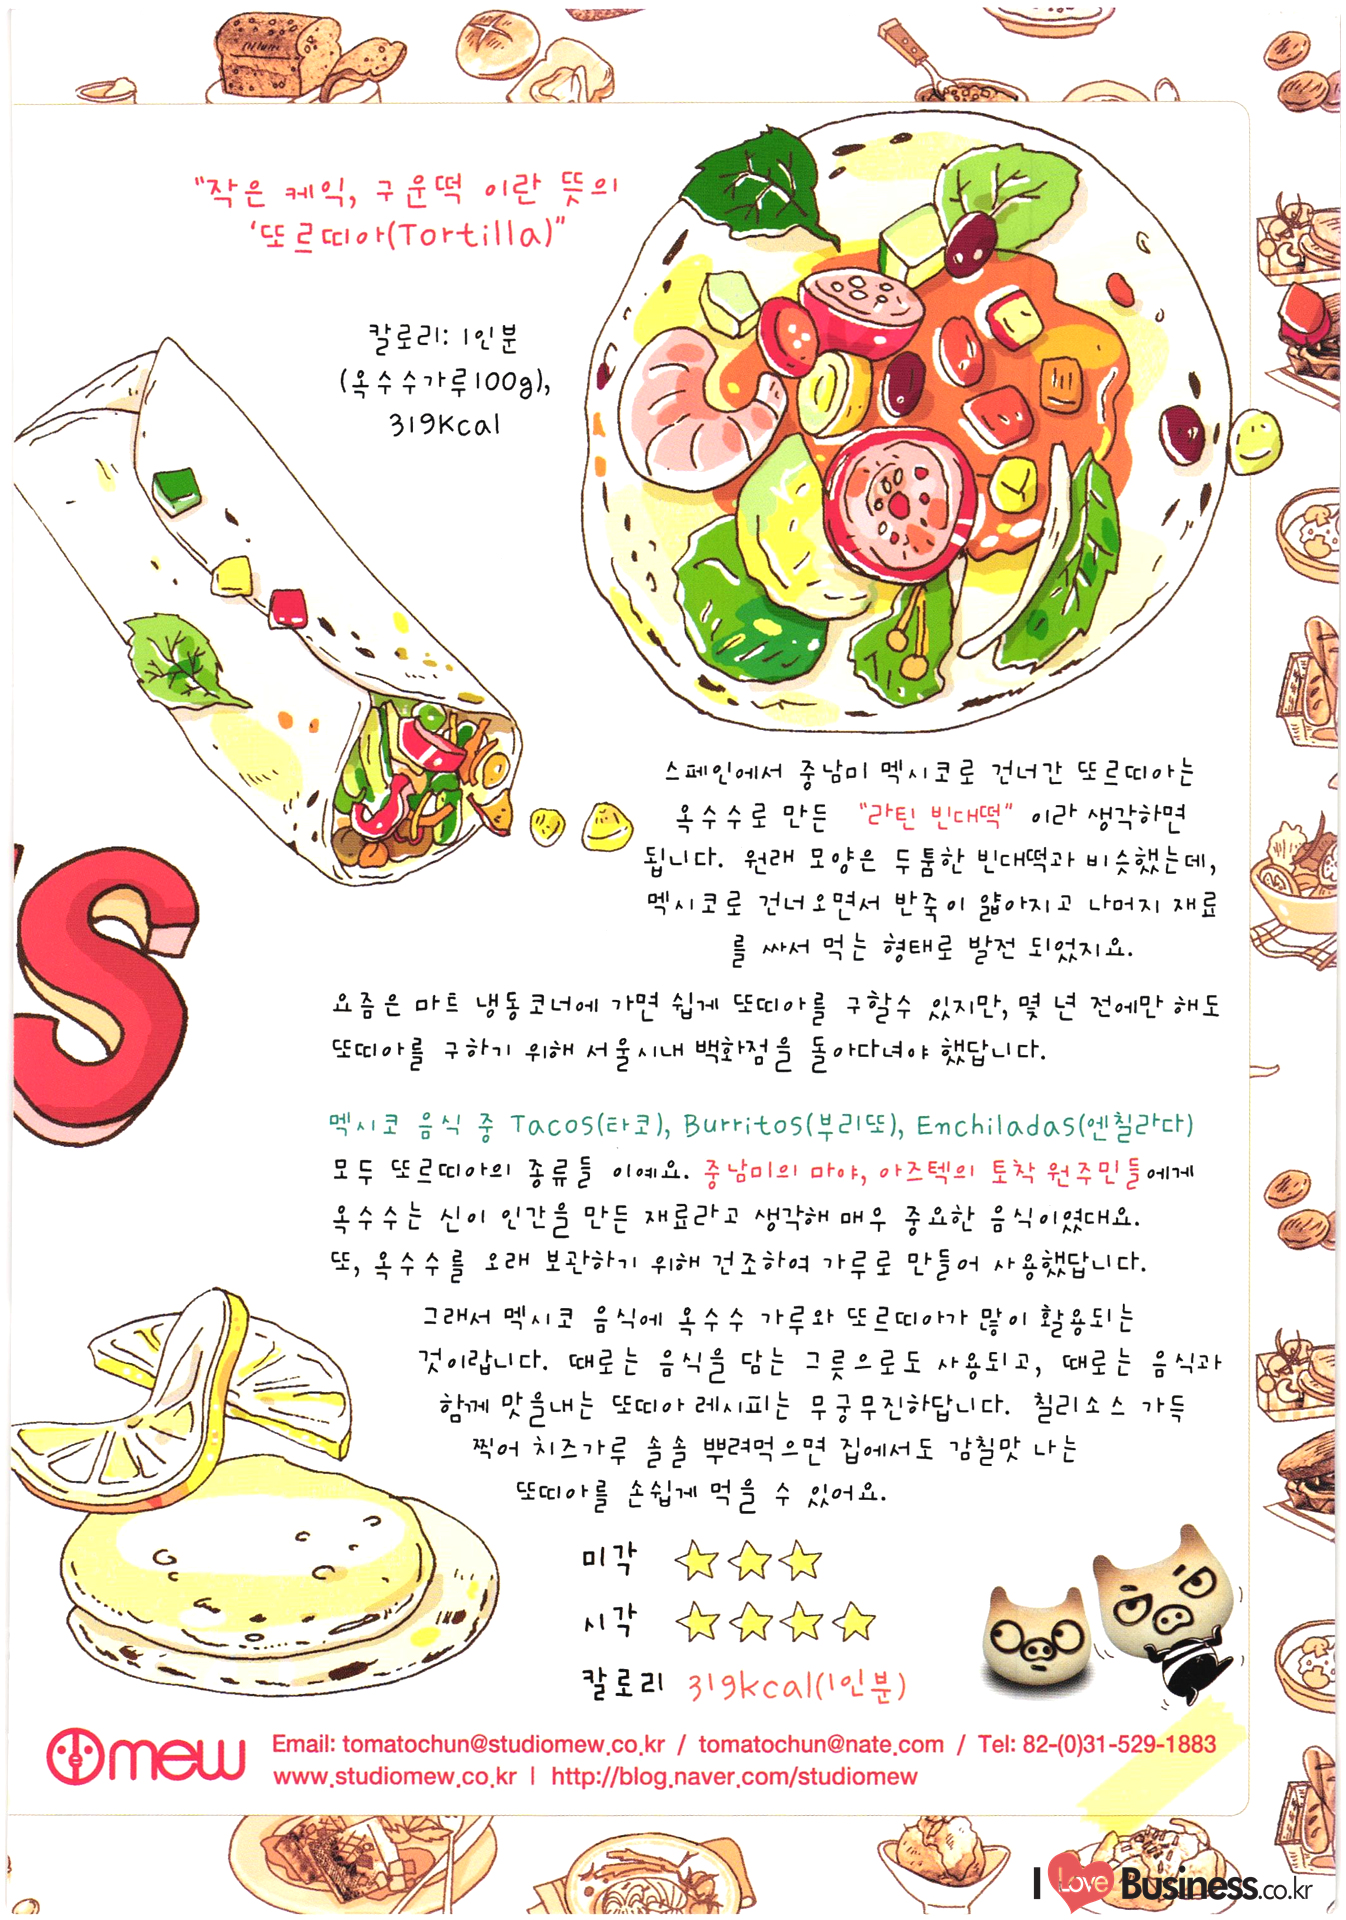 "작은 케익, 구운떡 이란 뜻의
'또르띠아(Tortilla)"
칼로리: 1인분
(옥수수가루100g),
319Kcal
스페인에서 중남미 멕시코로 건너간 또르띠아는
옥수수로 만든 "라틴 빈대떡" 이라 생각하면
됩니다. 원래 모양은 두툼한 빈대떡과 비슷했는데,
멕시코로 건너오면서 반죽이 얇아지고 나머지 재료
를 싸서 먹는 형태로 발전 되었지요.
요즘은 마트 냉동코너에 가면 쉽게 또띠아를 구할수 있지만, 몇 년 전에만 해도
또띠아를 구하기 위해 서울시내 백화점을 돌아다녀야 했답니다.
멕시코 음식 중 Tacos(타코), Burritos(부리또), Enchiladas(엔칠라다)
모두 또르띠아의 종류들 이예요. 중남미의 마야, 아즈텍의 토착 원주민들에게
옥수수는 신이 인간을 만든 재료라고 생각해 매우 중요한 음식이였대요.
또, 옥수수를 오래 보관하기 위해 건조하여 가루로 만들어 사용했답니다.
그래서 멕시코 음식에 옥수수 가루와 또르띠아가 많이 활용되는
것이랍니다. 때로는 음식을 담는 그릇으로도 사용되고, 때로는 음식과
함께 맛을내는 또띠아 레시피는 무궁무진하답니다. 칠리소스 가득
찍어 치즈가루 솔솔 뿌려먹으면 집에서도 감칠맛 나는
또띠아를 손쉽게 먹을 수 있어요.
미각
시각
칼로리 319kcal(1인분)
S
mew
Email: tomatochun@studiomew.co.kr / tomatochun@nate.com / Tel: 82-(0)31-529-1883
www.studiomew.co.kr | http://blog.naver.com/studiomew
I Love Business.co.kr